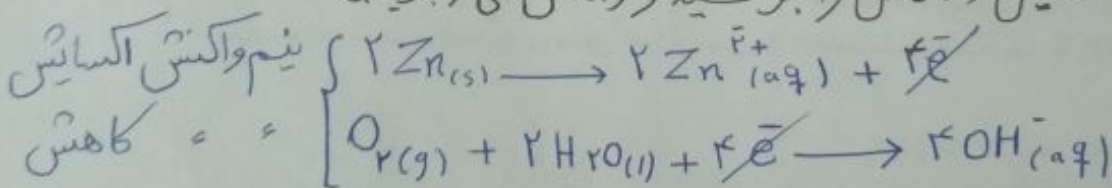 نیم واکنش اکسایش ۲Zn(s) ⟶ ۲Zn²⁺(aq) + ۴e⁻
کاهش ، ، O₂(g) + ۲H₂O(l) + ۴e⁻ ⟶ ۴OH⁻(aq)